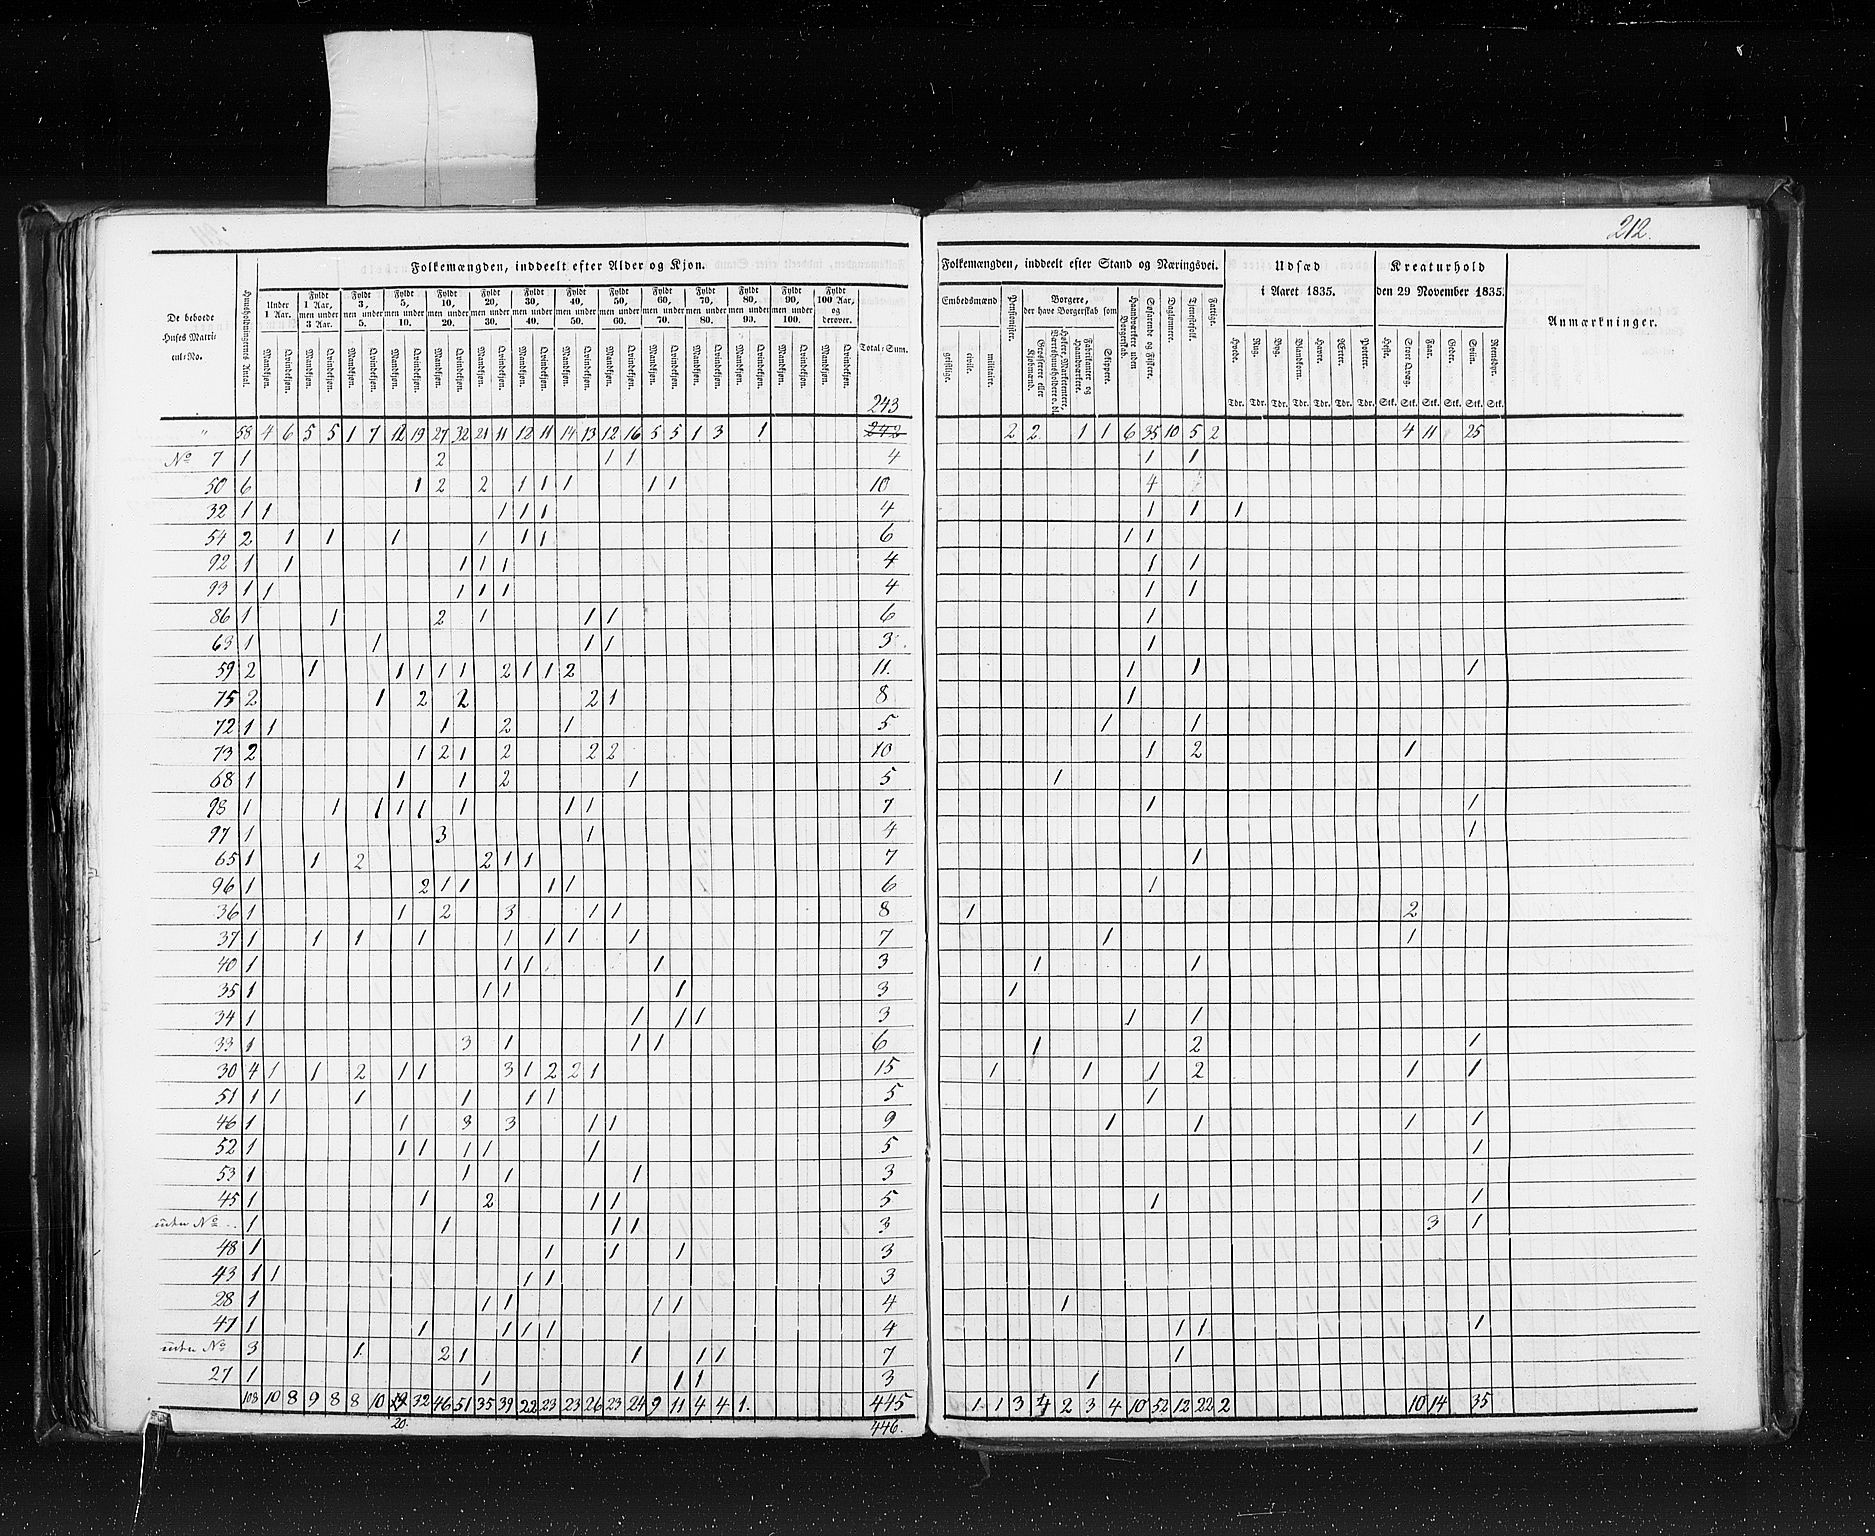 212.
De beboede Huses Matricul-No.
Huusholdningernes Antal.
Folkemængden, inddeelt efter Alder og Kjøn.
Under 1 Aar. | Fyldt 1 Aar, men under 3 Aar. | Fyldt 3, men under 5. | Fyldt 5, men under 10. | Fyldt 10, men under 20. | Fyldt 20, men under 30. | Fyldt 30, men under 40. | Fyldt 40, men under 50. | Fyldt 50, men under 60. | Fyldt 60, men under 70. | Fyldt 70, men under 80. | Fyldt 80, men under 90. | Fyldt 90, men under 100. | Fyldt 100 Aar, og derover. | Total-Sum.
Mandkjøn. Qvindekjøn. Mandkjøn. Qvindekjøn. Mandkjøn. Qvindekjøn. Mandkjøn. Qvindekjøn. Mandkjøn. Qvindekjøn. Mandkjøn. Qvindekjøn. Mandkjøn. Qvindekjøn. Mandkjøn. Qvindekjøn. Mandkjøn. Qvindekjøn. Mandkjøn. Qvindekjøn. Mandkjøn. Qvindekjøn. Mandkjøn. Qvindekjøn. Mandkjøn. Qvindekjøn. Mandkjøn. Qvindekjøn.
Folkemængden, inddeelt efter Stand og Næringsvei.
Embedsmænd | geistlige. | civile. | militaire. | Pensionister.
Borgere, der have Borgerskab som
Grosserere eller Kjøbmænd. | Høkere, Marketentere, Værtshuusholdere o. dl. | Fabrikanter og Haandværkere. | Skippere.
Haandværkere uden Borgerskab. | Søefarende og Fiskere. | Daglønnere. | Tjenestefolk. | Fattige.
Udsæd i Aaret 1835.
Hvede. | Rug. | Byg. | Blandkorn. | Havre. | Ærter. | Poteter.
Tdr. Tdr. Tdr. Tdr. Tdr. Tdr. Tdr.
Kreaturhold den 29 November 1835.
Heste. | Stort Qvæg. | Faar. | Geder. | Sviin. | Reensdyr.
Stk. Stk. Stk. Stk. Stk. Stk.
Anmærkninger.
243
" 58 4 6 5 5 1 7 12 19 27 32 21 11 12 11 14 13 12 16 5 5 1 3 1 242 2 2 1 1 6 35 10 5 2 4 11 25
No 7 1 2 1 1 4 1 1
50 6 1 2 2 1 1 1 1 1 10 4
32 1 1 1 1 1 4 1 1 1
54 2 1 1 1 1 1 1 6 1 1
92 1 1 1 1 1 4 1 1
93 1 1 1 1 1 4 1 1
86 1 1 2 1 1 1 6 1
63 1 1 1 1 3 1
59 2 1 1 1 1 1 2 1 1 2 11 1 1 1
75 2 1 2 2 2 1 8 1
72 1 1 1 2 1 5 1 1
73 2 1 2 1 2 2 2 10 1 2 1
68 1 1 1 2 1 5 1
98 1 1 1 1 1 1 1 1 7 1 1
97 1 3 1 4 1
65 1 1 2 2 1 1 7 1
96 1 2 1 1 1 1 6 1
36 1 1 2 3 1 1 8 1 2
37 1 1 1 1 1 1 1 1 7 1 1
40 1 1 1 1 3 1 1
35 1 1 1 1 3 1
34 1 1 1 1 3 1 1
33 1 3 1 1 1 6 1 2 1
30 4 1 1 2 1 1 3 1 2 2 1 15 1 1 1 2 1 1
51 1 1 1 1 1 1 5 1
46 1 1 3 3 1 1 9 1 1 1 1
52 1 1 1 1 1 1 5 1
53 1 1 1 1 3
45 1 1 2 1 1 5 1 1
uden No 1 1 1 1 3 3 1
48 1 1 1 1 3
43 1 1 1 1 3
28 1 1 1 1 1 4 1
47 1 1 1 1 1 4 1 1 1
uden No 3 1 2 1 1 1 1 7 1
27 1 1 1 1 3 1
108 10 8 9 8 8 10 19 32 46 51 35 39 22 23 23 26 23 24 9 11 4 4 1. 445 1. 1 3 4 2 3 4 10 52 12 22 2 10 14 35
20. 446.